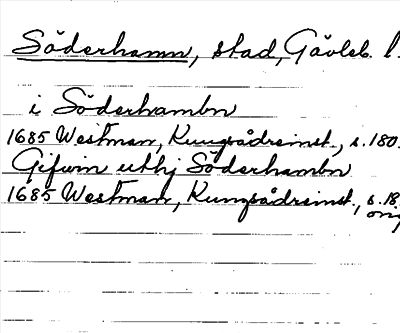 Söderhamn, stad, Gävleb. l.
i Söderhambn
1685 Westman, Kungsådreinst., s. 180.
Gifwin uthj Söderhambn
1685 Westman, Kungsådreinst., s. 18
orig